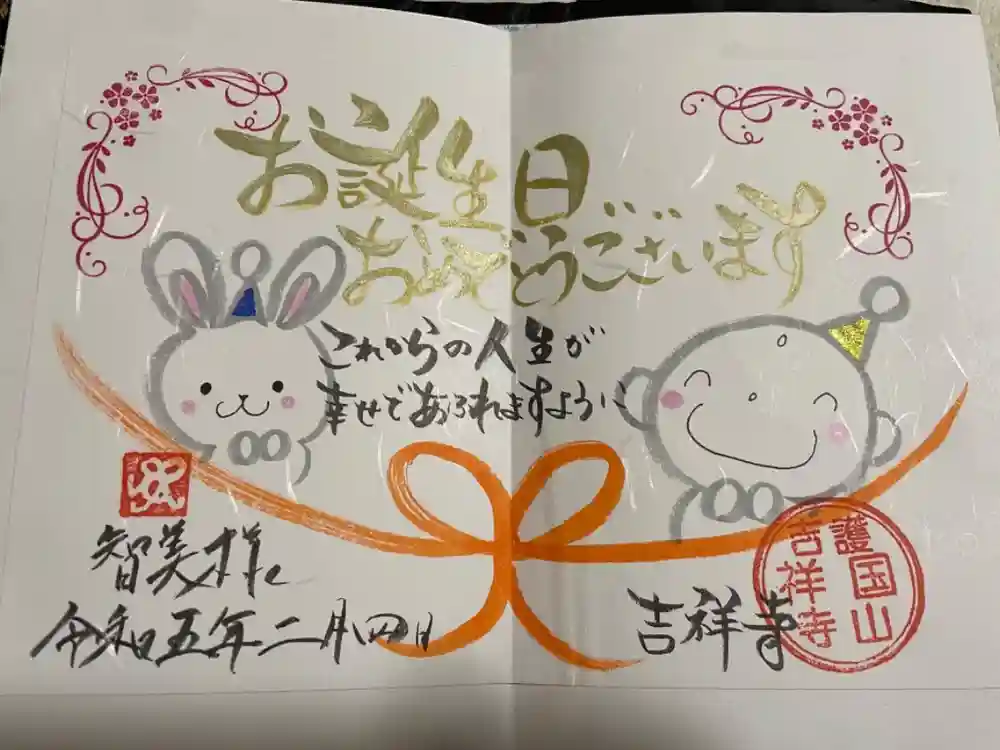 お誕生日
おめでとうございます
これからの人生が
幸せであふれますように
智美様
令和五年二月四日
吉祥寺
護国山
吉祥寺